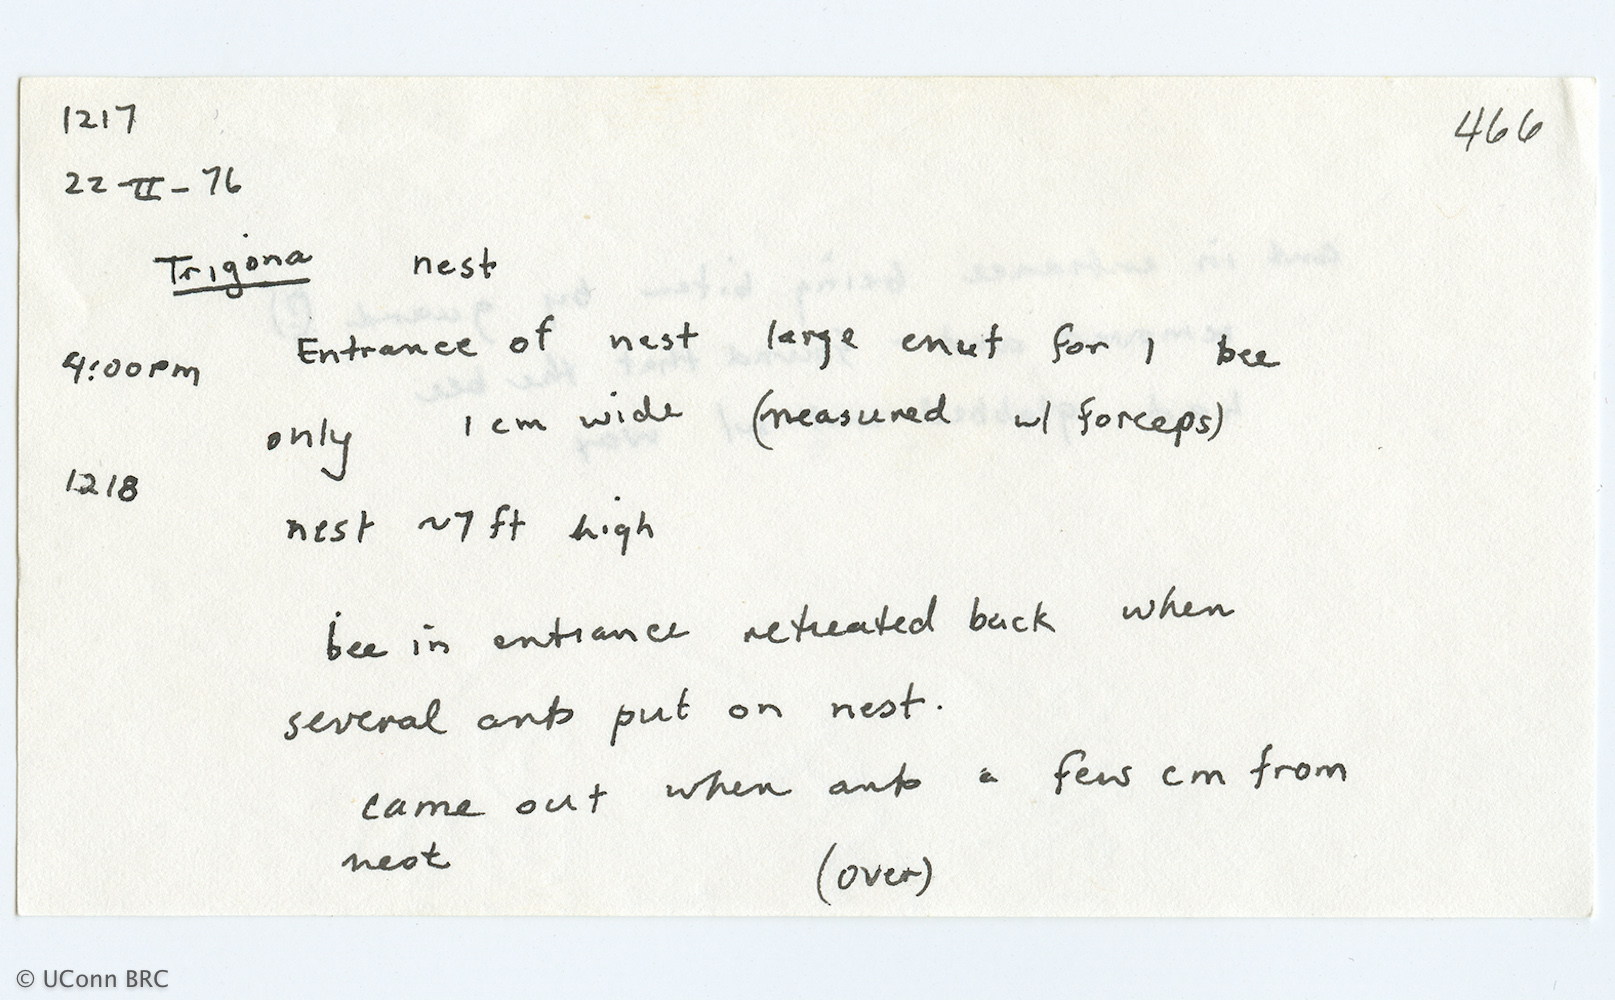 1217
466
22-II-76
Trigona nest
4:00pm Entrance of nest large enuf for 1 bee
only 1 cm wide (measured w/ forceps)
1218
nest ~7 ft high
bee in entrance retreated back when
several ants put on nest.
came out when ants a few cm from
nest
(over)
© UConn BRC